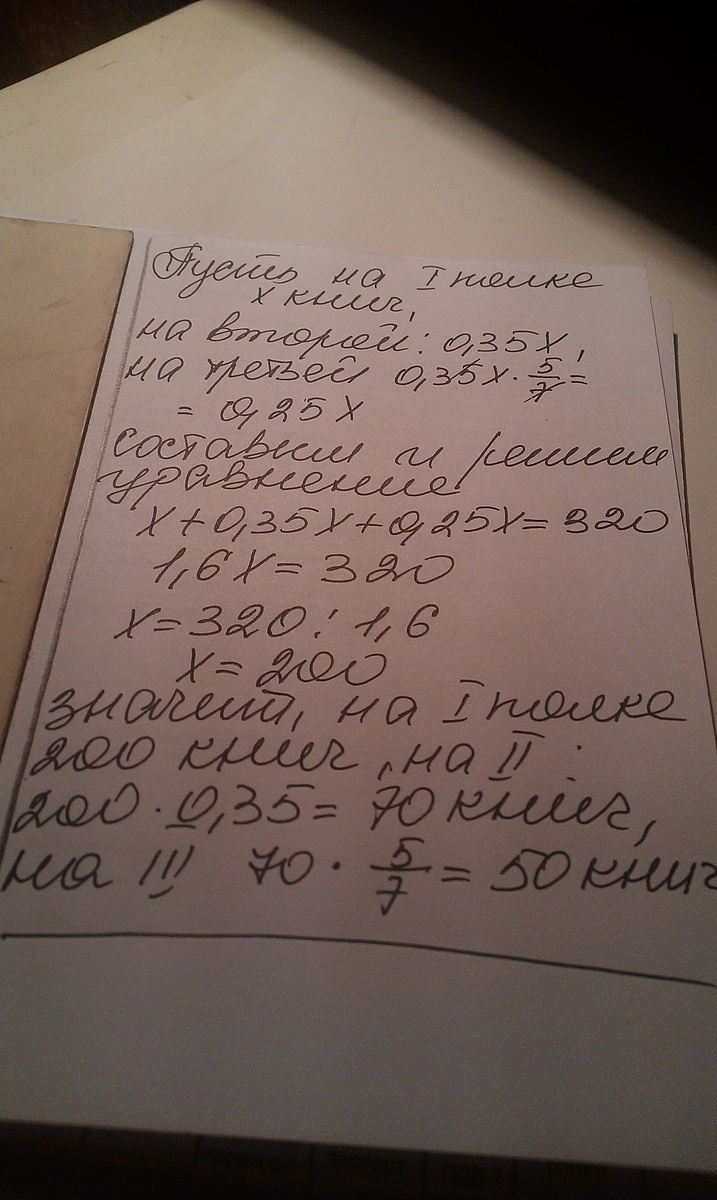 Пусть на I полке
x книг,
на второй: 0,35x,
на третьей 0,35x · 5/7 =
= 0,25x
составим и решим
уравнение
x+0,35x+0,25x=320
1,6x=320
x=320:1,6
x=200
значит, на I полке
200 книг, на II :
200 · 0,35= 70 книг,
на III 70 · 5/7 = 50 книг